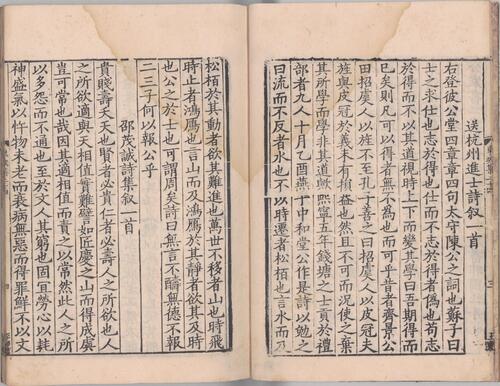 送杭州進士詩叙一首
右登彼公堂四章章四句太守陳公之詞也蘇子曰
士之求仕也志於得也仕而不志於得者偽也苟志
於得而不以其道視時上下而變其學曰吾期得而
已矣則凡可以得者無不為也而可乎昔者齊景公
田招虞人以旌不至孔子善之曰招虞人以皮冠夫
旌與皮冠於義未有損益也然且不可而况使之棄
其所學而學非其道歟熙寧五年錢塘之士貢於禮
部者九人十月乙酉燕于中和堂公作是詩以勉之
曰流而不反者水也不以時遷者松柏也言水而及
松栢於其動者欲其難進也萬世不移者山也時飛
時止者鴻鴈也言山而及鴻鴈於其靜者欲其及時
也公之於士也可謂周矣詩曰無言不醻無德不報
二三子何以報公乎
邵茂誠詩集叙一首
貴賤壽夭天也賢者必貴仁者必壽人之所欲也人
之所欲適與天相值實難譬如匠慶之山而得成虡
豈可常也哉因其適相值而責之以常然此人之所
以多怨而不通也至於文人其窮也固宜勞心以耗
神盛氣以忤物未老而衰病無惡而得罪鮮不以文